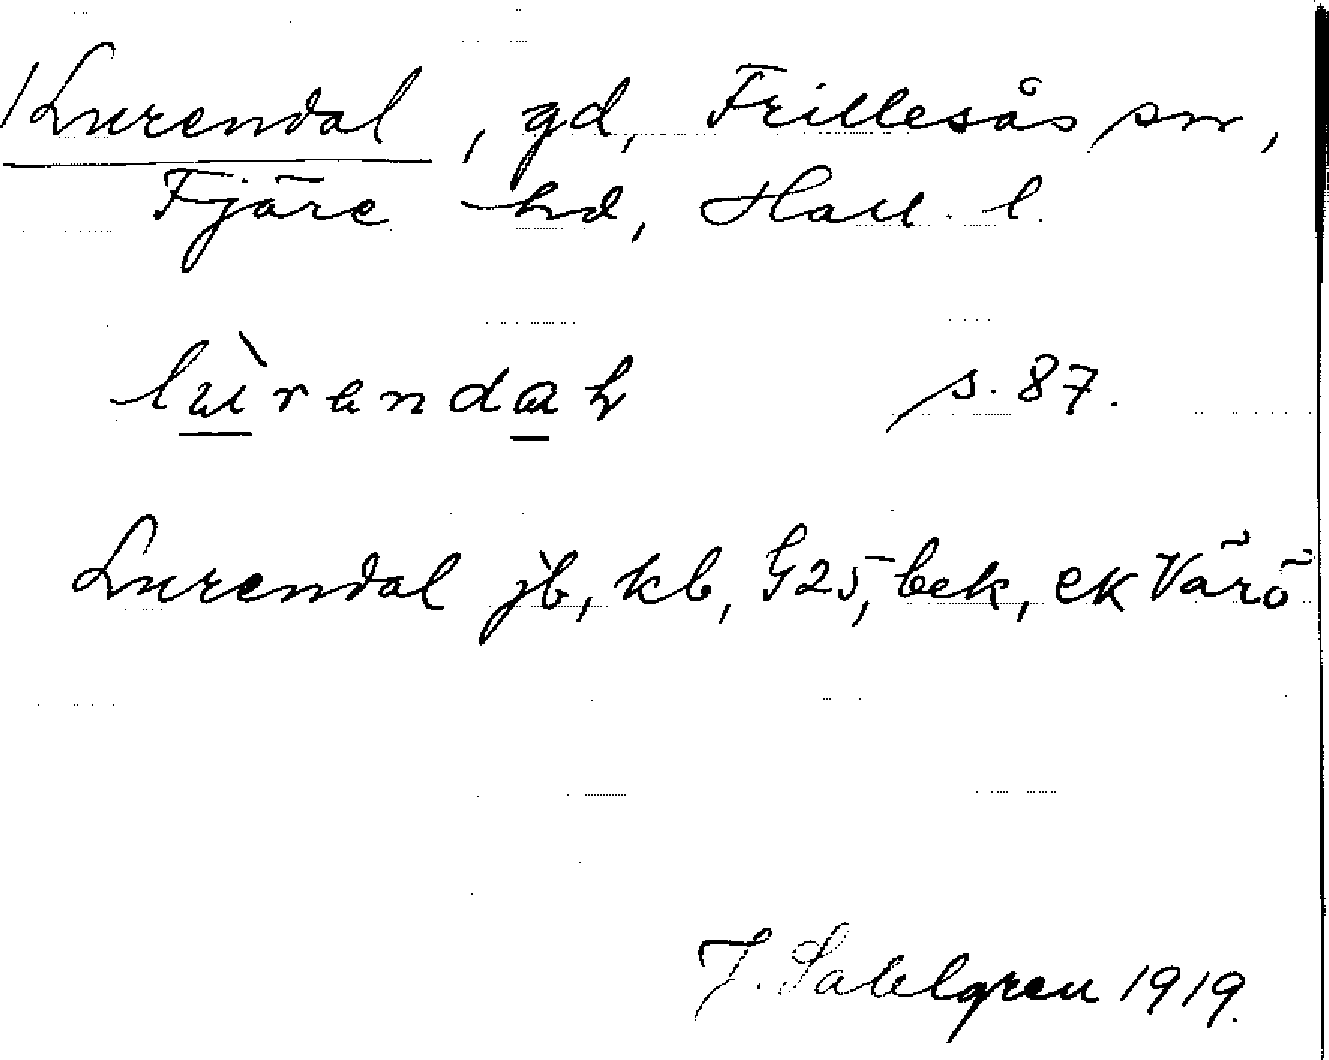 1 Lurendal, gd, Frillesås sn,
Fjäre hd, Hall. l.
s. 87.
Lurendal jb, kb, G25, bek, ek Värö
J. Sahlgren 1919.